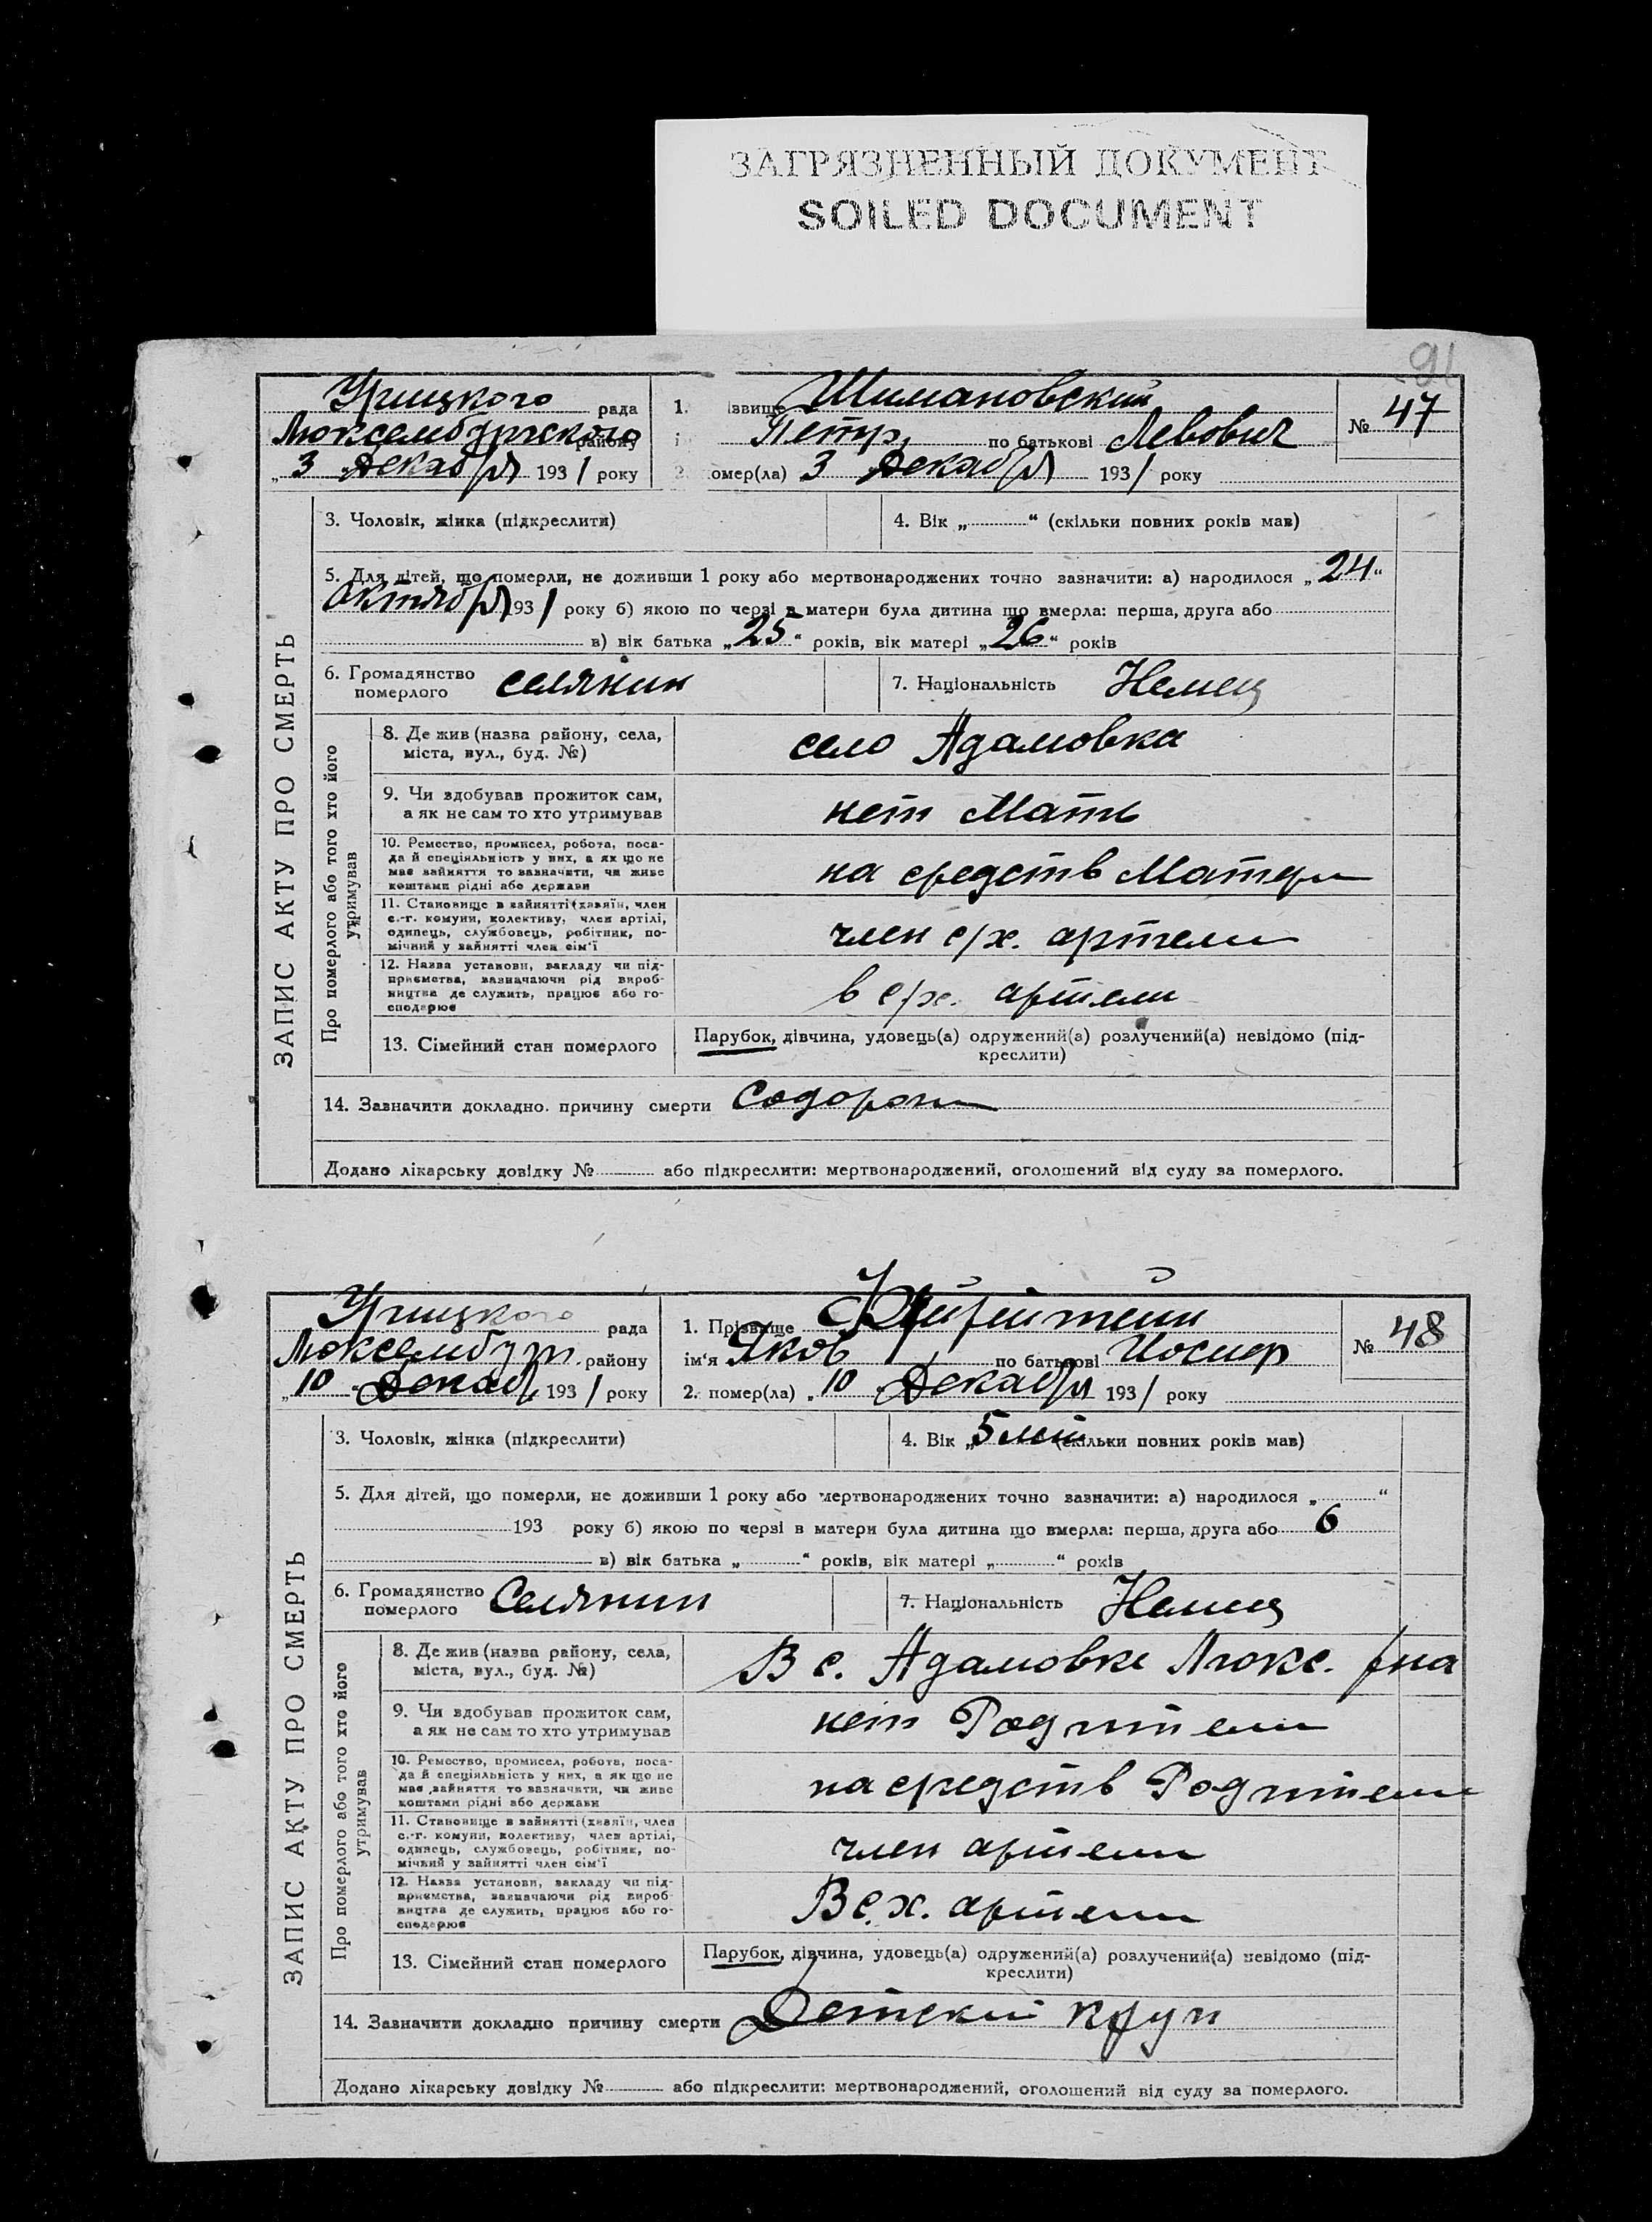 ЗАГРЯЗНЕННЫЙ ДОКУМЕНТ
SOILED DOCUMENT
91
Урицкого рада
Люксембургского району
„3 Декабря 1931 року
1. ізвище Шимановский
і Петр, по батькові Левович
2. омер(ла) 3 Декабря 1931 року
№ 47
ЗАПИС АКТУ ПРО СМЕРТЬ
3. Чоловік, жінка (підкреслити)
4. Вік „ “ (скільки повних років мав)
5. Для дітей, що померли, не доживши 1 року або мертвонароджених точно зазначити: а) народилося „24“
Октября 1931 року б) якою по черзі в матери була дитина що вмерла: перша, друга або
в) вік батька „25“ років, вік матері „26“ років
6. Громадянство
померлого селянин
7. Національність Немец
Про померлого або того хто його
утримував
8. Де жив (назва району, села,
міста, вул., буд. №)
село Адамовка
9. Чи здобував прожиток сам,
а як не сам то хто утримував
нет Мать
10. Ремество, промисел, робота, поса-
да й спеціяльність у них, а як що не
має зайняття то зазначити, чи живе
коштами рідні або держави
на средств Матери
11. Становище в зайнятті (хазяїн, член
с.-г. комуни, колективу, член артілі,
одинець, службовець, робітник, по-
мічний у зайнятті член сім'ї
член с/х. артели
12. Назва установи, закладу чи під-
приємства, зазначаючи рід вироб-
ництва де служить, працює або го-
сподарює
в с/х. артели
13. Сімейний стан померлого
Парубок, дівчина, удовець(а) одружений(а) розлучений(а) невідомо (під-
креслити)
14. Зазначити докладно причину смерти
Додано лікарську довідку № або підкреслити: мертвонароджений, оголошений від суду за померлого.
Урицкого рада
Люксембург. району
„10 Декаб. 1931 року
1. Прізвище
ім'я Яков по батькові Иосиф
2. помер(ла) „10 Декабря 1931 року
№ 48
ЗАПИС АКТУ ПРО СМЕРТЬ
3. Чоловік, жінка (підкреслити)
4. Вік „5 лет (скільки повних років мав)
5. Для дітей, що померли, не доживши 1 року або мертвонароджених точно зазначити: а) народилося „ “
193 року б) якою по черзі в матери була дитина що вмерла: перша, друга або 6
в) вік батька „ “ років, вік матері „ “ років
6. Громадянство
померлого Селянин
7. Національність Немец
Про померлого або того хто його
утримував
8. Де жив (назва району, села,
міста, вул., буд. №)
В с. Адамовке Люкс. рна
9. Чи здобував прожиток сам,
а як не сам то хто утримував
нет Родители
10. Ремество, промисел, робота, поса-
да й спеціяльність у них, а як що не
має зайняття то зазначити, чи живе
коштами рідні або держави
на средств Родители
11. Становище в зайнятті (хазяїн, член
с.-г. комуни, колективу, член артілі,
одинець, службовець, робітник, по-
мічний у зайнятті член сім'ї
член артели
12. Назва установи, закладу чи під-
приємства, зазначаючи рід вироб-
ництва де служить, працює або го-
сподарює
В с.х. артели
13. Сімейний стан померлого
Парубок, дівчина, удовець(а) одружений(а) розлучений(а) невідомо (під-
креслити)
14. Зазначити докладно причину смерти Детский круп
Додано лікарську довідку № або підкреслити: мертвонароджений, оголошений від суду за померлого.